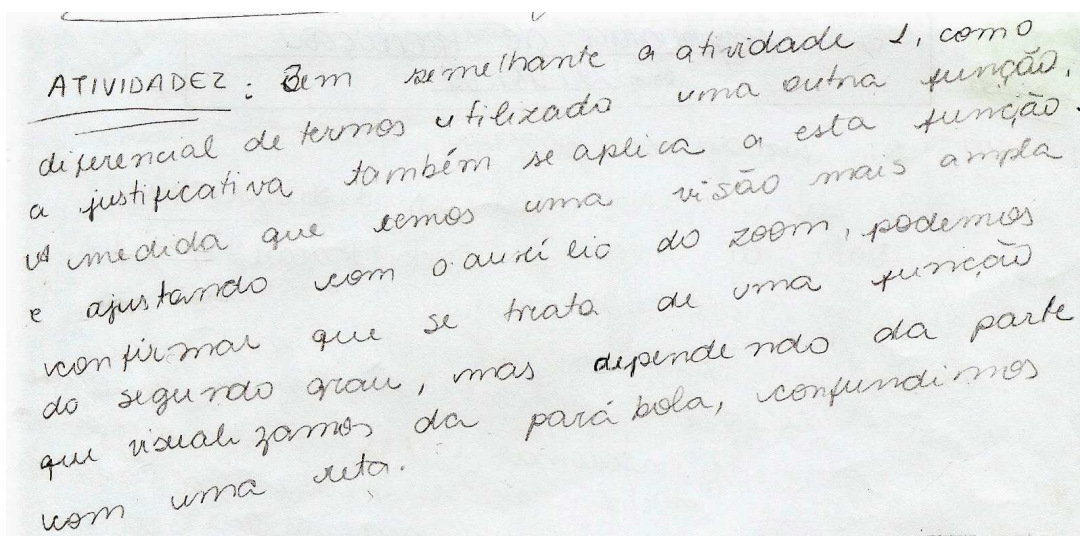 ATIVIDADE2 : Bem semelhante a atividade 1, como
diferencial de termos utilizado uma outra função,
a justificativa também se aplica a esta função.
A medida que temos uma visão mais ampla
e ajustando com o auxílio do zoom, podemos
confirmar que se trata de uma função
do segundo grau, mas dependendo da parte
que visualizamos da parábola, confundimos
com uma reta.